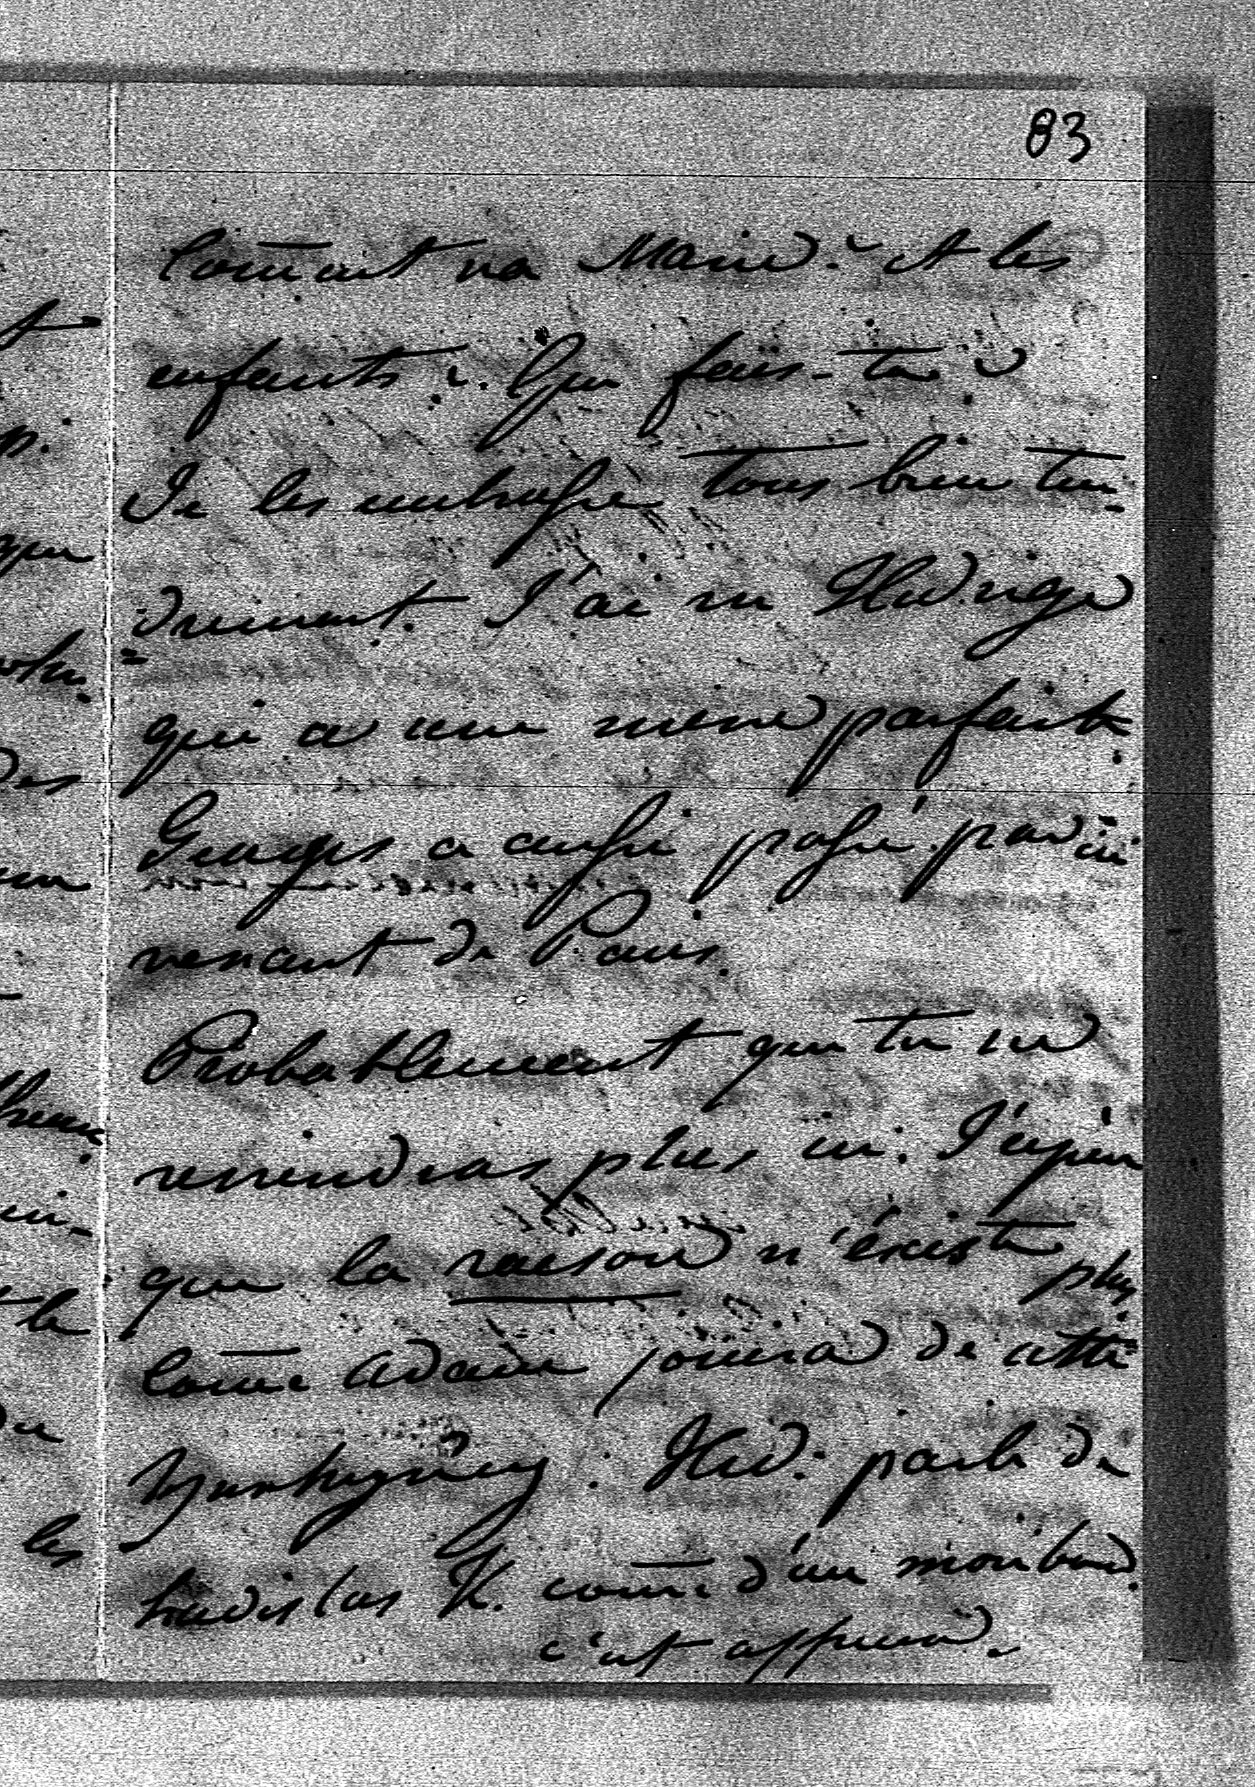 83
Com̄ent va Marie? et les
enfants? Que fais-tu?
Je les embrasse tous bien ten-
drement. J'ai vu Hedwige
qui a une mine parfaite.
Georges a aussi passé par ici
venant de Paris.
Probablement que tu ne
reviendras plus ici. J'espère
que la raison n'éxiste plus
Com̄e Adam jouira de cette
Hed: parle de
Ladislas K. com̄e d'un moribond.
c'est affreux.